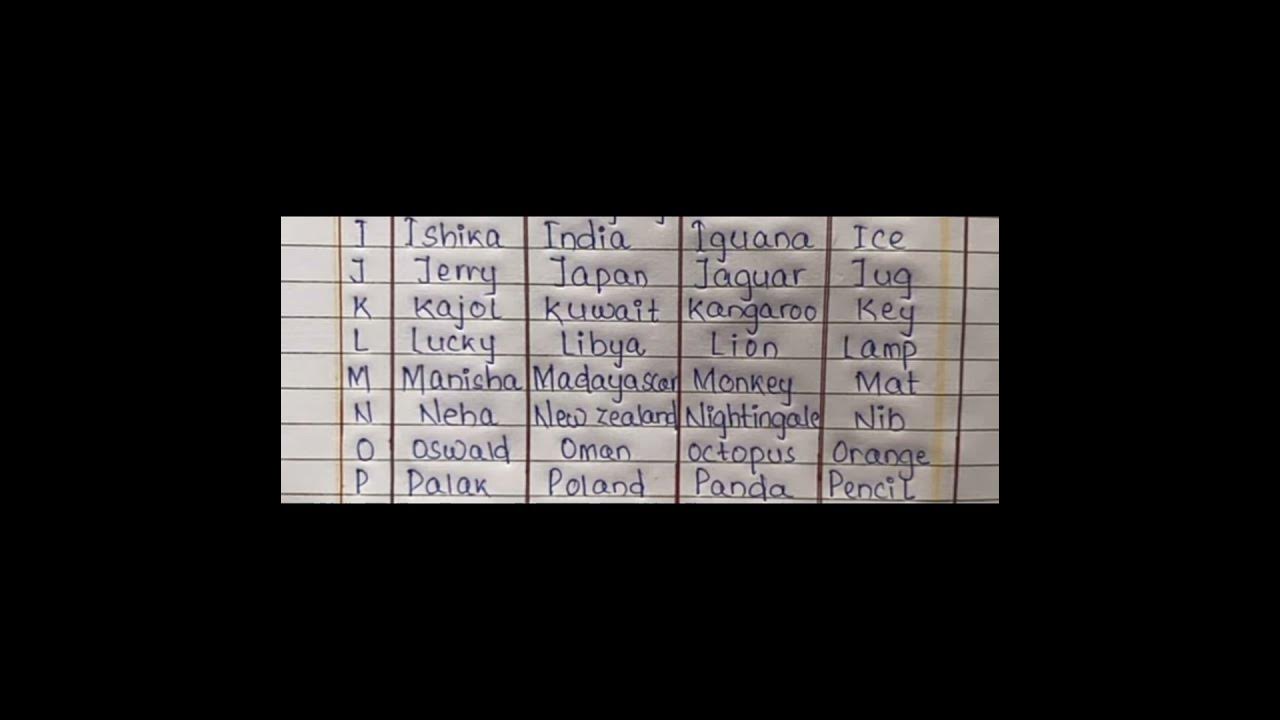 I Ishika India Iguana Ice
J Jerry Japan Jaguar Jug
K Kajol Kuwait Kangaroo Key
L Lucky Libya Lion Lamp
M Manisha Madayascar Monkey Mat
N Neha New zealand Nightingale Nib
O Oswald Oman Octopus Orange
P Palak Poland Panda Pencil